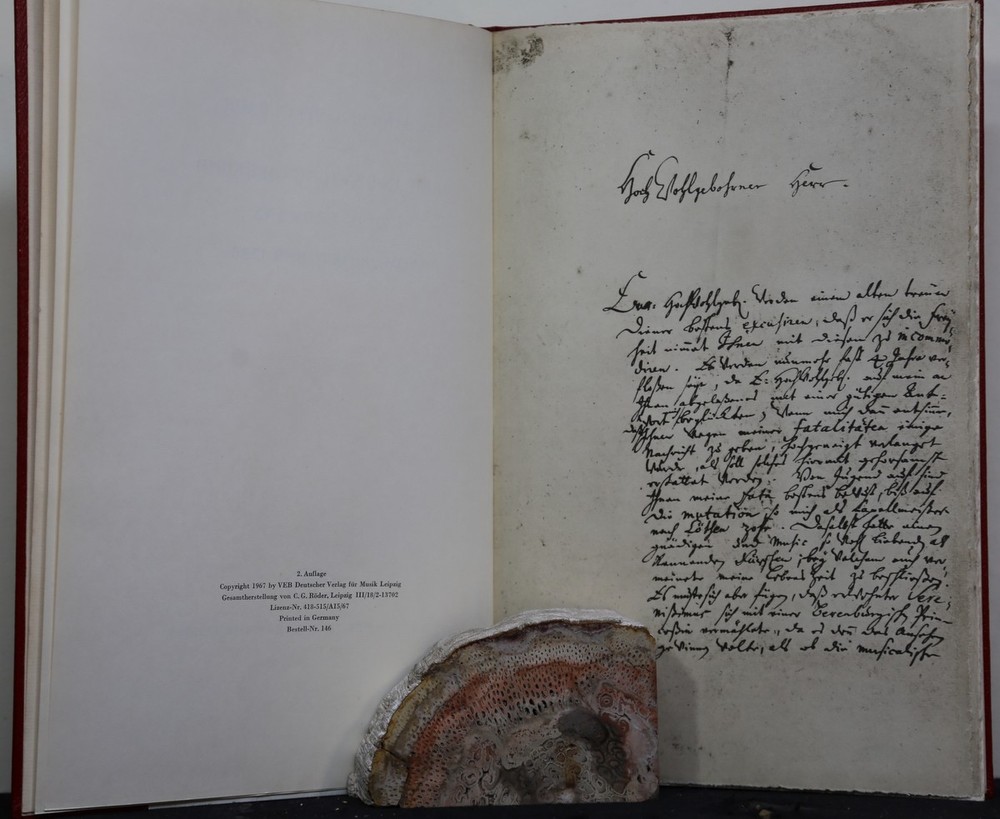 2. Auflage
Copyright 1967 by VEB Deutscher Verlag für Musik Leipzig
Gesamtherstellung von C. G. Röder, Leipzig III/18/2-13702
Lizenz-Nr. 418-515/A15/67
Printed in Germany
Bestell-Nr. 146
Hoch Wohlgebohrner Herr.
Hochwohlgeb. werden einen alten treuen
Diener bestens excusiren, daß er sich die Frey-
heit nimmet Ihnen mit diesen zu incommo-
diren. Es werden nunmehr fast 4 Jahre ver-
floßen seyn, da E: Hochwohlgeb. auf mein an
Ihnen abgelaßenes mit einer gütigen Ant-
wort beglückten; Wenn mich dann entsinne,
daß Ihnen wegen meiner Fatalitäten einige
Nachricht zu geben, hochgeneigt verlanget
wurde, als soll solches hiermit gehorsamst
erstattet werden. Von Jugend auf sind
Ihnen meine Fata bestens bewust, biß auf
die mutation so mich als Capellmeister
nach Cöthen zohe. Daselbst hatte einen
gnädigen und Music so wohl liebenden als
kennenden Fürsten; bey welchem auch ver-
meinete meine Lebenszeit zu beschließen.
Es muste sich aber fügen, daß erwehnter Sere-
nißimus sich mit einer Berenburgischen Prin-
ceßin vermählete, da es denn das Ansehen
gewinnen wolte, als ob die musicalische